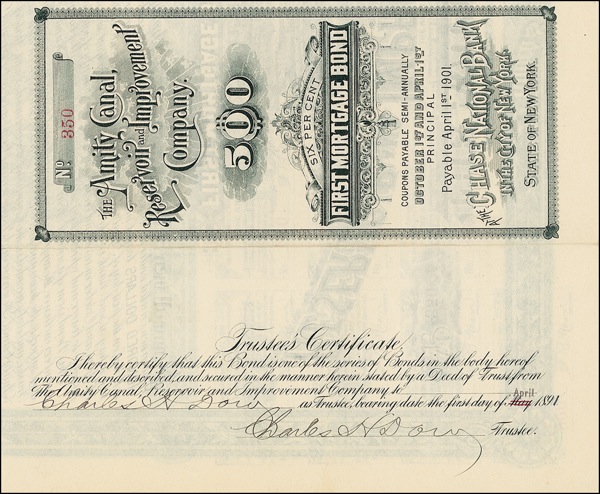 No 350
THE Amity Canal,
Reservoir and Improvement
Company.
500
SIX PER CENT
FIRST MORTGAGE BOND
COUPONS PAYABLE SEMI-ANNUALLY
OCTOBER 1ST AND APRIL 1ST
PRINCIPAL
Payable April 1ST 1901.
AT THE CHASE NATIONAL BANK
IN THE CITY OF NEW YORK,
STATE OF NEW YORK.
Trustee's Certificate
I hereby certify that this Bond is one of the series of Bonds in the body hereof
mentioned and described, and secured in the manner herein stated by a Deed of Trust from
The Amity Canal, Reservoir and Improvement Company to
Charles H Dow as Trustee, bearing date the first day of May April 1891
Charles H Dow Trustee.